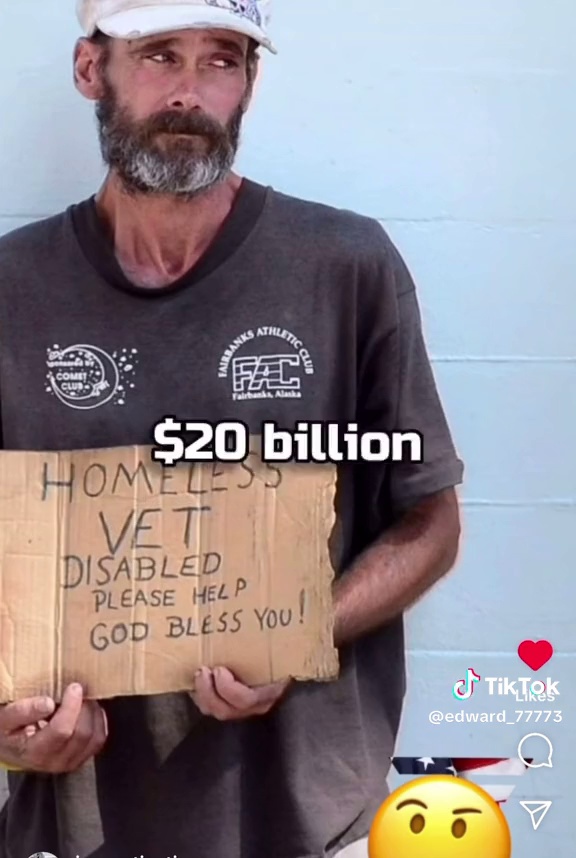 FAIRBANKS ATHLETIC CLUB
FAC
Fairbanks, Alaska
COMET
CLUB
$20 billion
HOMELESS
VET
DISABLED
PLEASE HELP
GOD BLESS YOU!
TikTok
Likes
@edward_77773